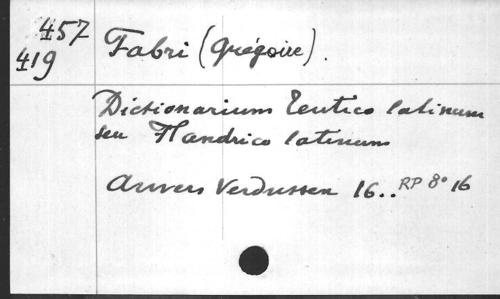 457
419
Fabri (Grégoire).
Dictionarium Teutico latinum
seu Flandrico latinum
Anvers Verdussen 16.. RP 8° 16